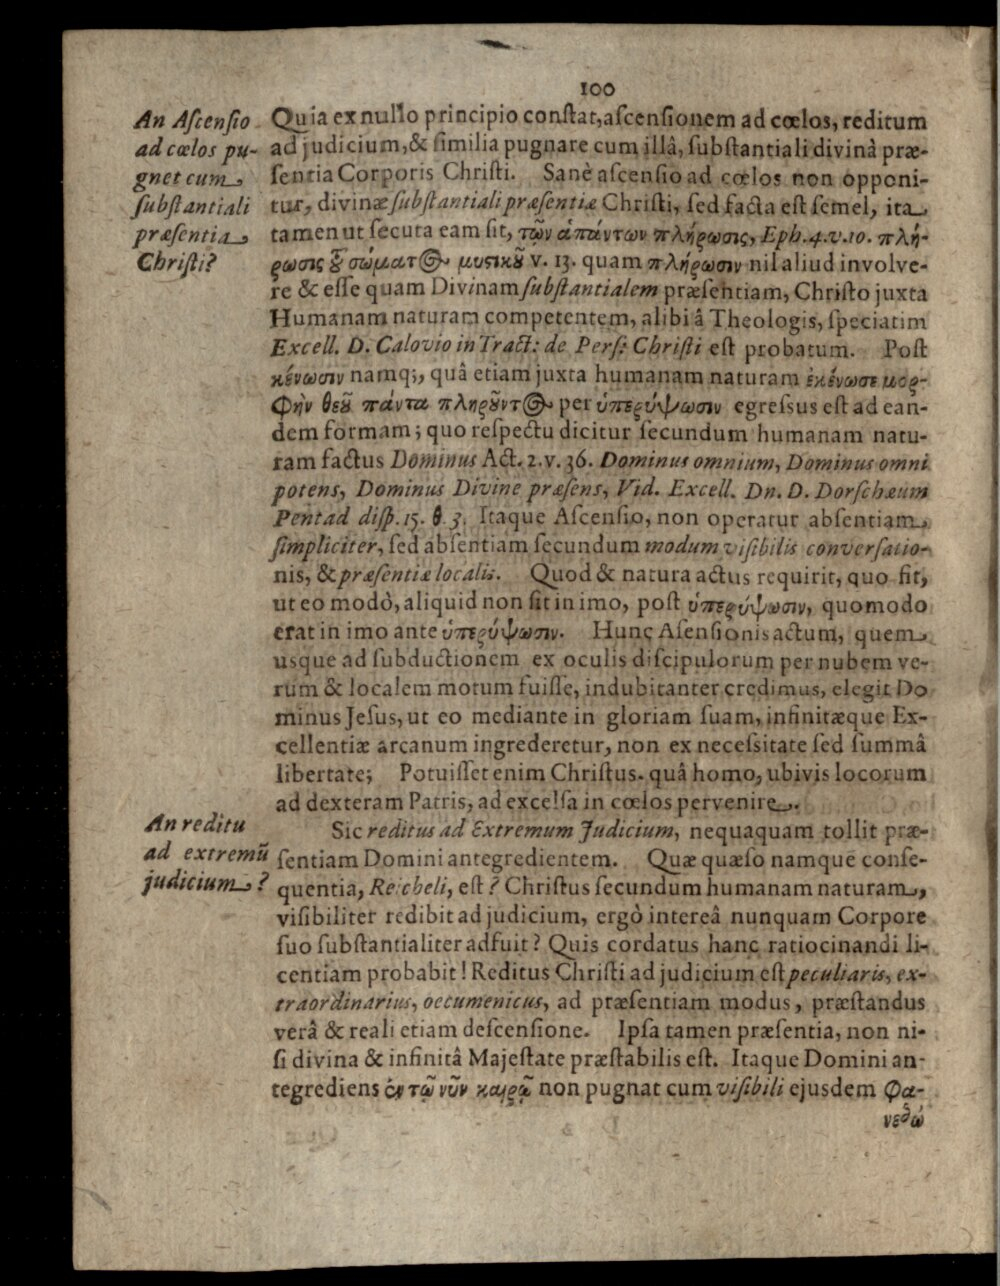 100
An Ascensio
ad cœlos pu-
gnet cum
substantiali
præsentia
Christi?
Quia ex nullo principio constat, ascensionem ad cœlos, reditum
ad judicium, & similia pugnare cum illâ, substantiali divinâ præ-
sentia Corporis Christi. Sanè ascensio ad cœlos non opponi-
tur, divinæ substantiali præsentiæ Christi, sed facta est semel, ita
tamen ut secuta eam sit, τῶν ἁπάντων πλήρωσις, Eph. 4. v. 10. πλή-
ρωσις τοῦ σώματος μυστικοῦ v. 13. quam πλήρωσιν nil aliud involve-
re & esse quam Divinam substantialem præsentiam, Christo juxta
Humanam naturam competentem, alibi â Theologis, speciatim
Excell. D. Calovio in Tract: de Pers: Christi est probatum. Post
κένωσιν namq;, quâ etiam juxta humanam naturam ἐκένωσε μορ-
φὴν θεοῦ πάντα πληροῦντος per ὑπερύψωσιν egressus est ad ean-
dem formam; quo respectu dicitur secundum humanam natu-
ram factus Dominus Act. 2. v. 36. Dominus omnium, Dominus omni
potens, Dominus Divine præsens, Vid. Excell. Dn. D. Dorschæum
Pentad disp. 15. θ. 3. Itaque Ascensio, non operatur absentiam
simpliciter, sed absentiam secundum modum visibilis conversatio-
nis, & præsentiæ localis. Quod & natura actus requirit, quo fit,
ut eo modò, aliquid non sit in imo, post ὑπερύψωσιν, quomodo
erat in imo ante ὑπερύψωσιν. Hunc Asensionis actum, quem
usque ad subductionem ex oculis discipulorum per nubem ve-
rum & localem motum fuisse, indubitanter credimus, elegit Do
minus Jesus, ut eo mediante in gloriam suam, infinitæque Ex-
cellentiæ arcanum ingrederetur, non ex necessitate sed summâ
libertate; Potuisset enim Christus. quâ homo, ubivis locorum
ad dexteram Patris, ad excelsa in cœlos pervenire.
An reditu
ad extremũ
judicium?
Sic reditus ad Extremum Judicium, nequaquam tollit præ-
sentiam Domini antegredientem. Quæ quæso namque conse-
quentia, Reicheli, est? Christus secundum humanam naturam,
visibiliter redibit ad judicium, ergò intereâ nunquam Corpore
suo substantialiter adfuit? Quis cordatus hanc ratiocinandi li-
centiam probabit! Reditus Christi ad judicium est peculiaris, ex-
traordinarius, oecumenicus, ad præsentiam modus, præstandus
verâ & reali etiam descensione. Ipsa tamen præsentia, non ni-
si divina & infinitâ Majestate præstabilis est. Itaque Domini an-
tegrediens ἐν τῷ νῦν καιρῷ non pugnat cum visibili ejusdem φα-
νερώ